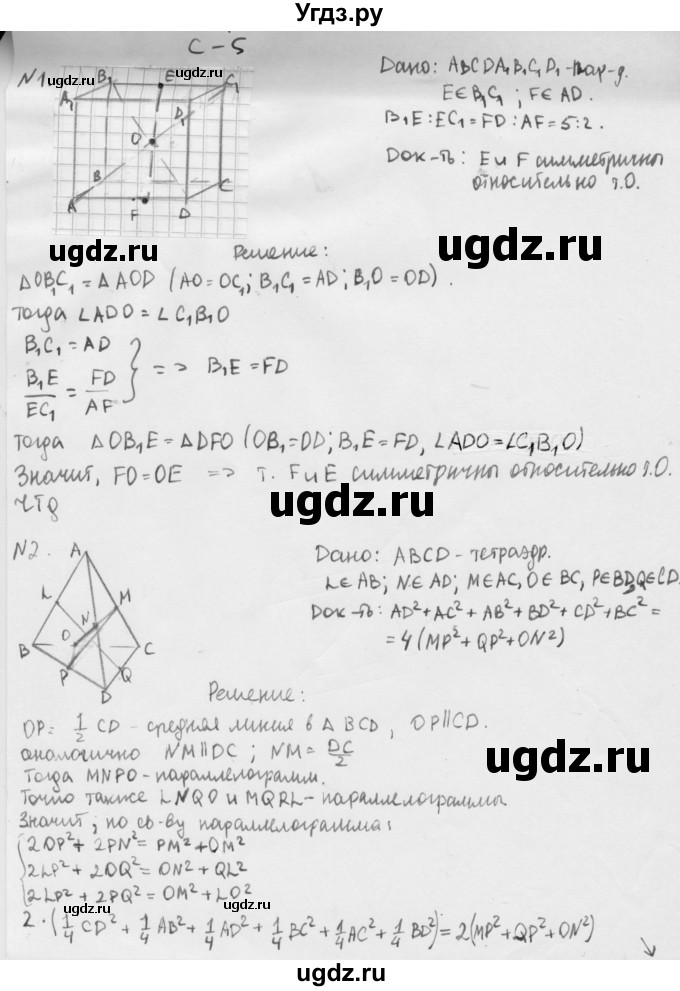 Угдз.ру
С-5
№1
A₁ B₁ E C₁ D₁ O B C A F D
Дано: ABCDA₁B₁C₁D₁ - пар-д.
E∈B₁C₁ ; F∈AD.
B₁E : EC₁ = FD : AF = 5:2.
Док-ть: E и F симметричны
относительно т.О.
ugdz.ru ugdz.ru
Решение:
△OB₁C₁ = △AOD (AO = OC₁; B₁C₁ = AD; B₁O = OD).
тогда ∠ADO = ∠C₁B₁O
B₁C₁ = AD
B₁E/EC₁ = FD/AF } => B₁E = FD
ugdz.ru
Тогда △OB₁E = △DFO (OB₁=OD; B₁E = FD, ∠ADO=∠C₁B₁O)
Значит, FO = OE => т. F и E симметричны относительно т.О.
ЧТД
ugdz.ru
№2.
A L N M O B C P Q D
Дано: ABCD - тетраэдр.
L∈AB; N∈AD; M∈AC, O∈BC, P∈BD, Q∈CD.
Док-ть: AD²+AC²+AB²+BD²+CD²+BC² =
= 4(MP²+QP²+ON²)
Решение:
ugdz.ru
OP = 1/2 CD - средняя линия в △ BCD, OP||CD.
аналогично NM||DC ; NM = DC/2
Тогда MNPO - параллелограмм.
ugdz.ru
Точно также LNQO и MQRL - параллелограммы
Значит, по св-ву параллелограмма:
{ 2OP² + 2PN² = PM² + OM²
2LP² + 2OQ² = ON² + QL²
2LP² + 2PQ² = OM² + LO²
ugdz.ru ugdz.ru
2·(1/4 CD² + 1/4 AB² + 1/4 AD² + 1/4 BC² + 1/4 AC² + 1/4 BD²) = 2(MP² + QP² + ON²)
ugdz.ru